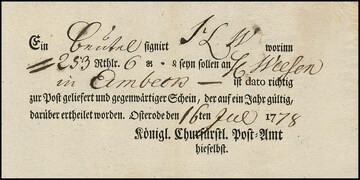 Ein Beutel signirt J L W worinn
253 Rthlr. 6 ggr. ₰ seyn sollen an H Weesen
in Eimbeck ist dato richtig
zur Post geliefert und gegenwärtiger Schein, der auf ein Jahr gültig,
darüber ertheilet worden. Osterode den 16ten Jul 1778
Königl. Churfürstl. Post-Amt
hieselbst.